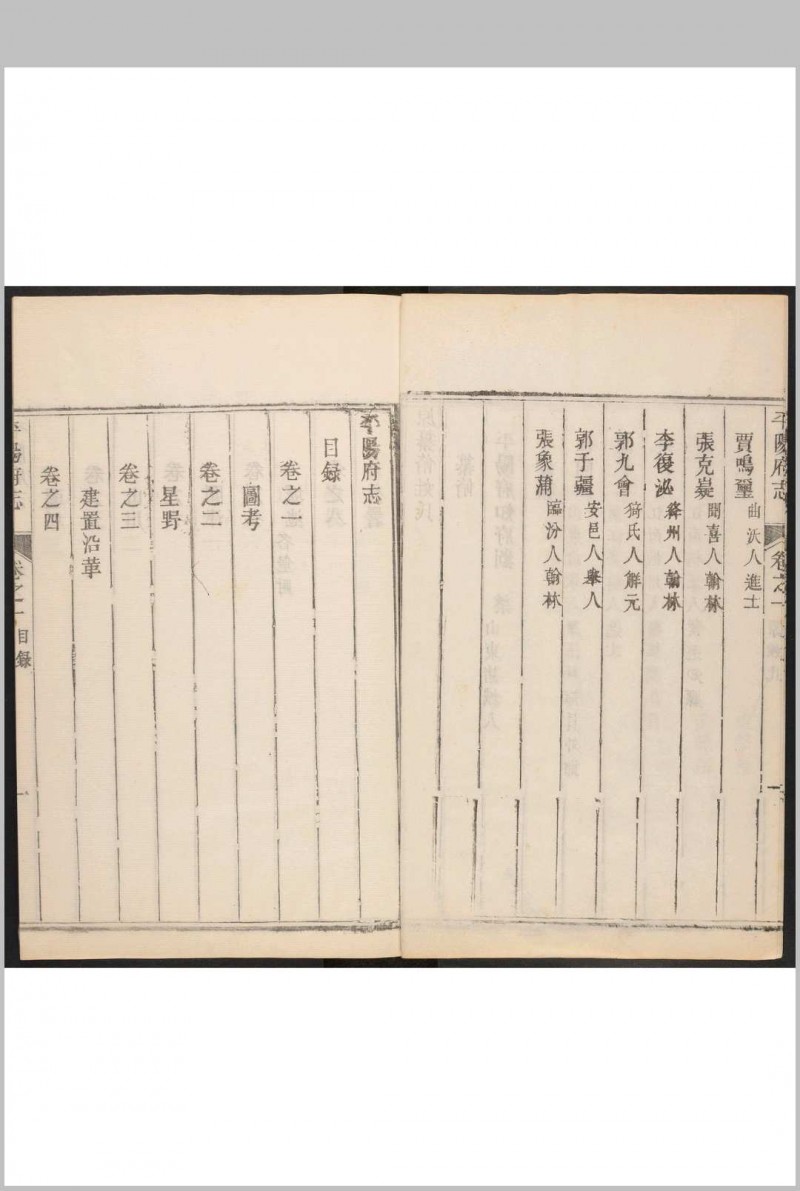 平陽府志 卷之一
賈鳴璽 曲沃人進士
張克嶷 聞喜人翰林
李復泌 絳州人翰林
郭九會 猗氏人解元
郭于疆 安邑人舉人
張象蒲 臨汾人翰林
平陽府志
目録
卷之一
圖考
卷之二
星野
卷之三
建置沿革
卷之四
平陽府志 卷之一 目録 一